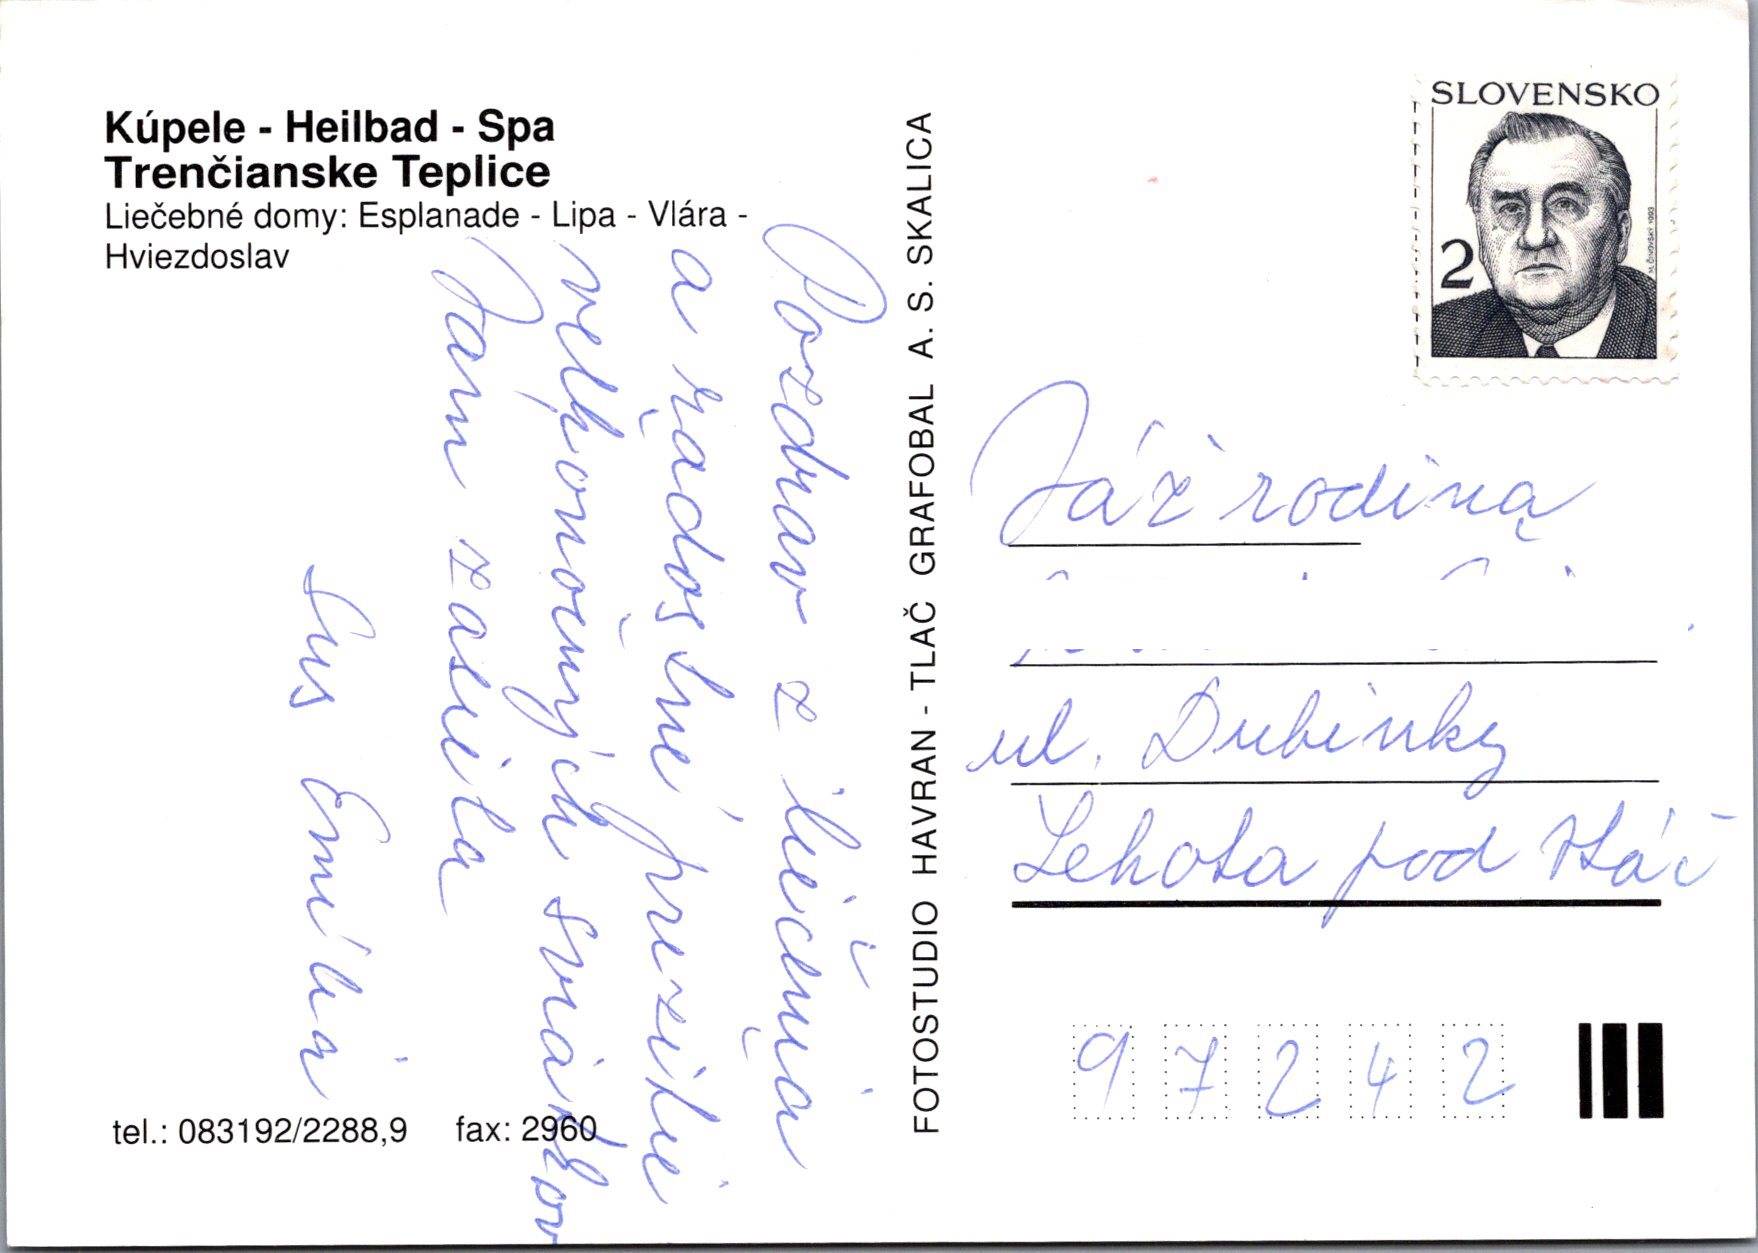 Kúpele - Heilbad - Spa
Trenčianske Teplice
Liečebné domy: Esplanade - Lipa - Vlára -
Hviezdoslav
Pozdrav z liečenia
a radostné prežitie
veľkonočných sviatkov
Vam zasiela
Emília
tel.: 083192/2288,9 fax: 2960
FOTOSTUDIO HAVRAN - TLAČ GRAFOBAL A. S. SKALICA
SLOVENSKO
2
M. ČINOVSKÝ 1993
Váž rodina
ul. Dubinky
Lehota pod Vtáč
97242